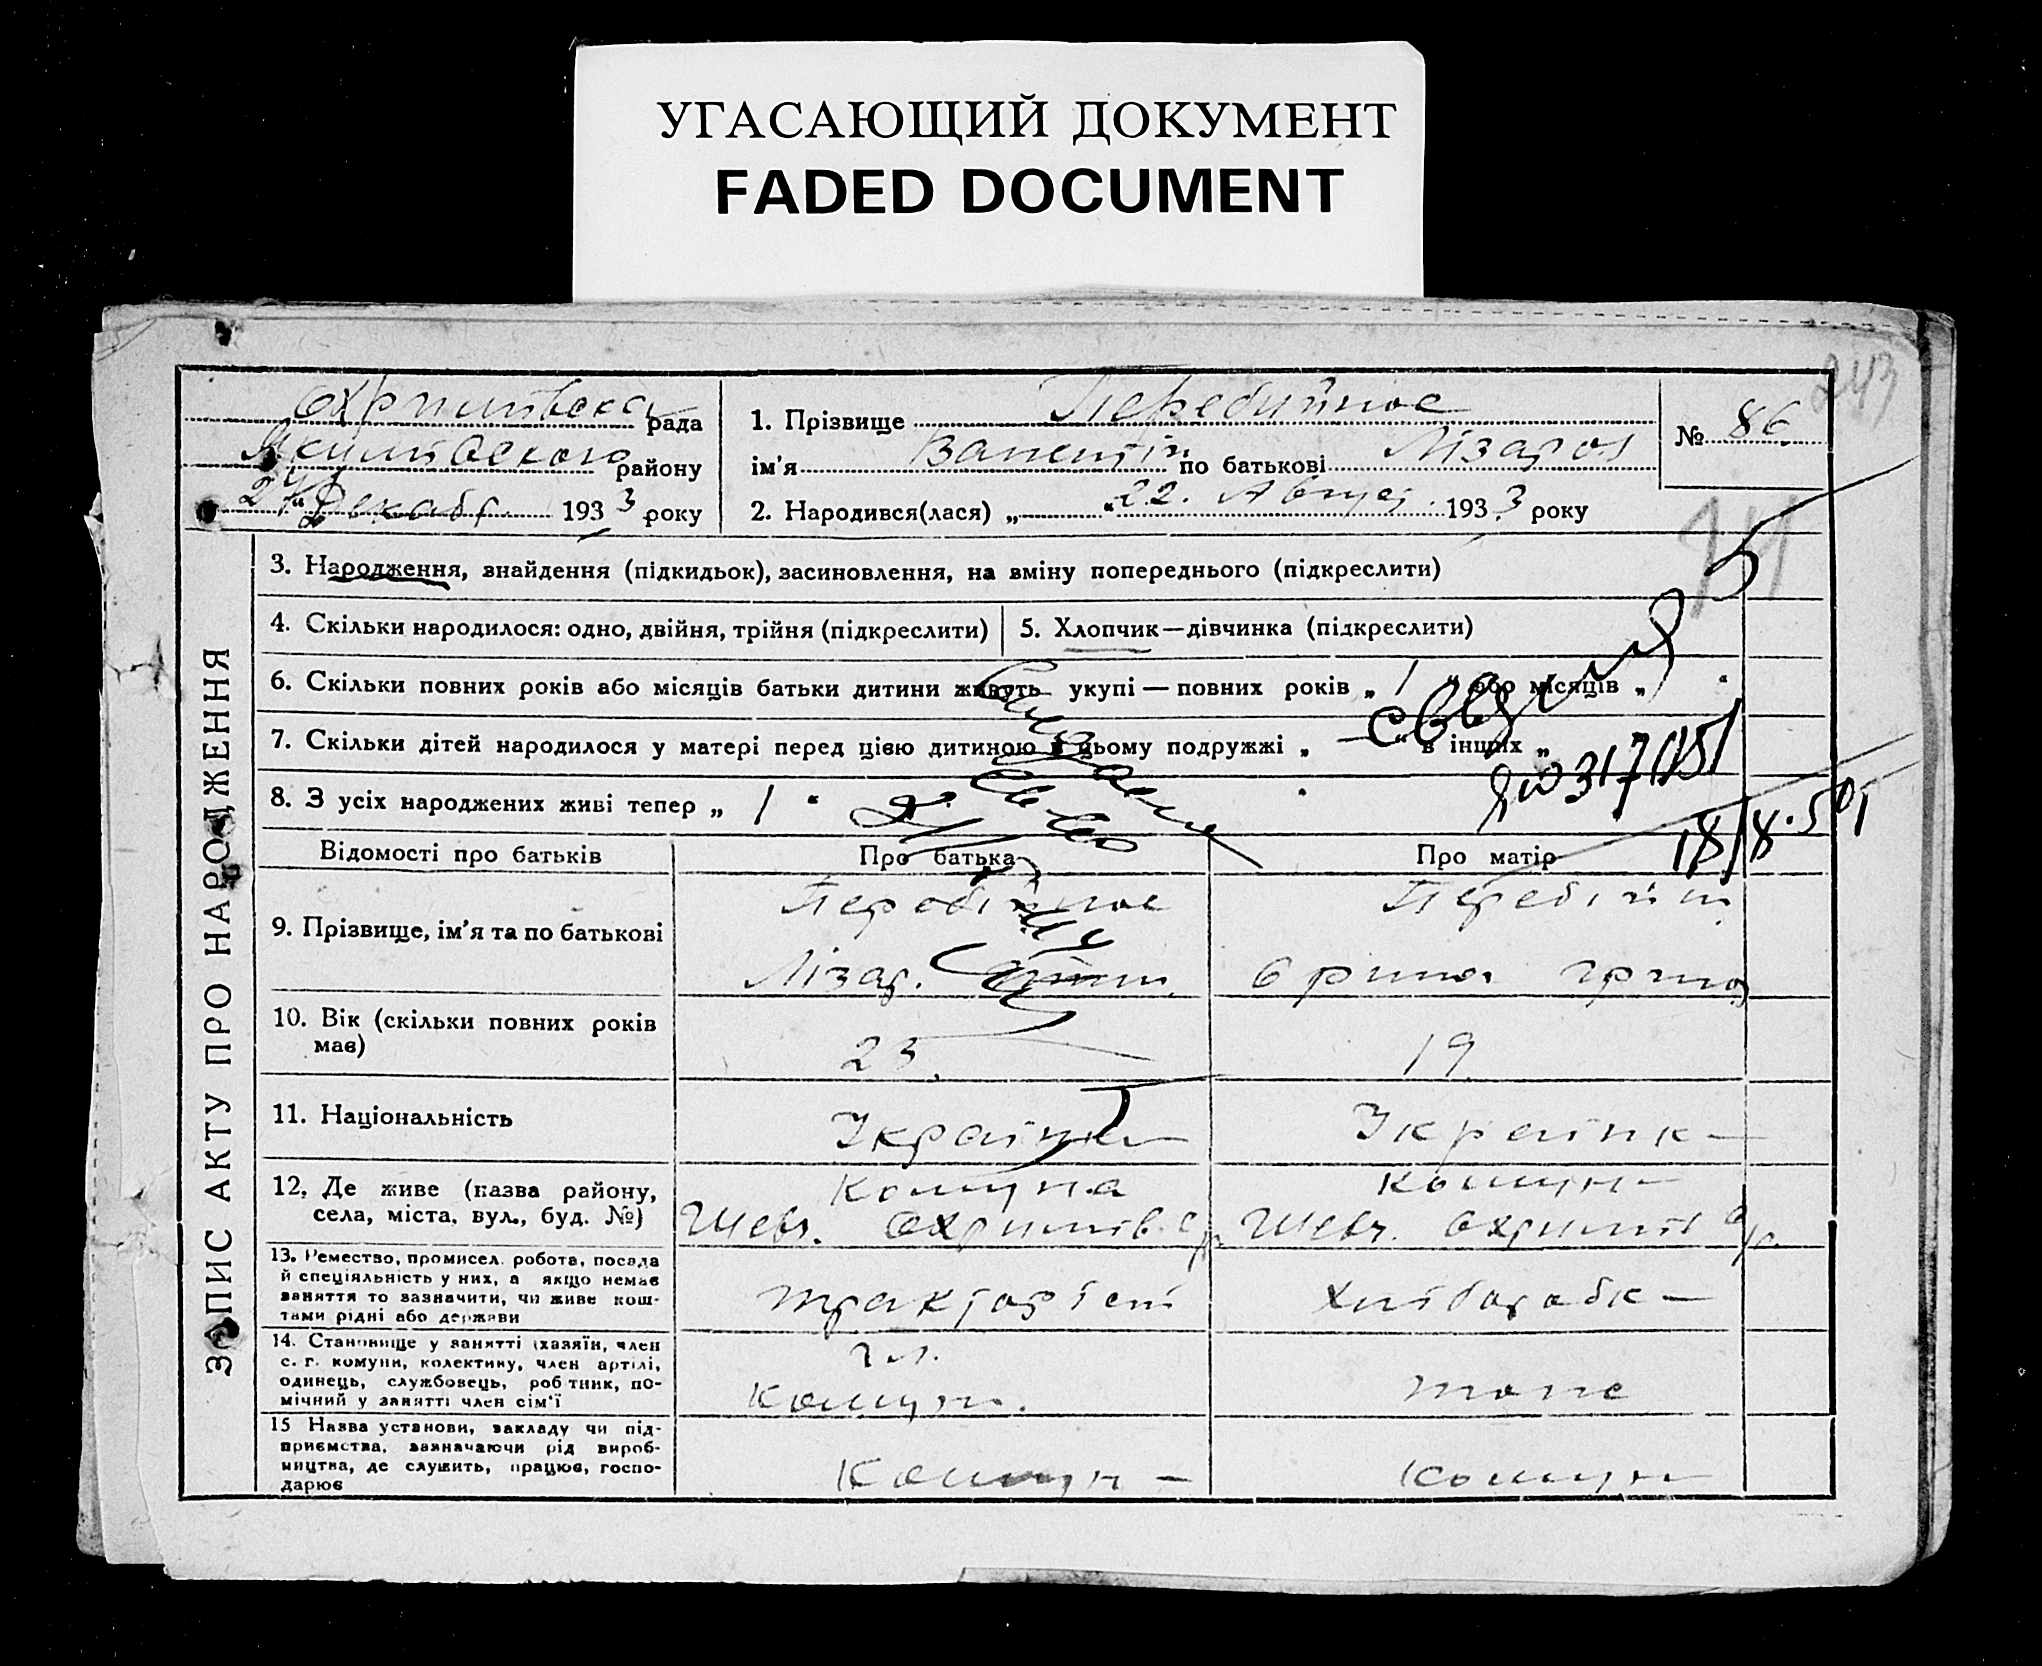 УГАСАЮЩИЙ ДОКУМЕНТ
FADED DOCUMENT
243
Охримівська рада
Якимівського району
24 Декабр. 1933 року
1. Прізвище Перебийнос
ім'я Валентін по батькові Лізаров
2. Народився(лася) „ “ 22. Август. 1933 року
№ 86
ЗАПИС АКТУ ПРО НАРОДЖЕННЯ
3. Народження, знайдення (підкидьок), засиновлення, на вміну попереднього (підкреслити)
4. Скільки народилося: одно, двійня, трійня (підкреслити)
5. Хлопчик—дівчинка (підкреслити)
6. Скільки повних років або місяців батьки дитини живуть укупі — повних років „ 1 “ або місяців „ “
7. Скільки дітей народилося у матері перед цією дитиною в цьому подружжі „ — “ в інших „
8. З усіх народжених живі тепер „ 1 “
18/8.51
Відомості про батьків
Про батька
Про матір
9. Прізвище, ім'я та по батькові
Перебійнос
Лізар.
Перебійн.
10. Вік (скільки повних років має)
23
19
11. Національність
Українк—
12. Де живе (назва району, села, міста, вул., буд. №)
Комуна
Шевч. Охримів. с/р.
Комун—
Шевч. Охримів с/р.
13. Ремество, промисел. робота, посада
й спеціяльність у них, а якщо немає
заняття то зазначити, чи живе кош-
тами рідні або держави
тракторіст
хліборобк—
14. Становище у занятті (хазяїн, член
с. г. комуни, колективу, член артілі,
одинець, службовець, робітник, по-
мічний у занятті член сім'ї
чл.
комун.
тоже
15 Назва установи, закладу чи під-
приємства, зазначаючи рід вироб-
ництва, де служить, працює, госпо-
дарює
Комун—
Комун